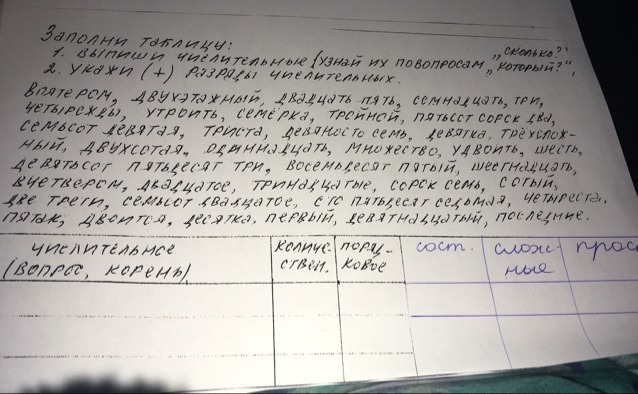 Заполни таблицу:
1. Выпиши числительные (узнай их повопросам „сколько?",
2. Укажи (+) разряды числительных. „который?",
Впятером, двухэтажный, двадцать пять, семнадцать, три,
четырежды, утроить, семёрка, тройной, пятьсот сорок два,
семьсот девятая, триста, девяносто семь, девятка, трёхслож-
ный, двухсотая, одиннадцать, множество, удвоить, шесть,
девятьсот пятьдесят три, восемьдесят пятый, шестнадцать,
вчетвером, двадцатое, тринадцатые, сорок семь, сотый,
две трети, семьсот двадцатое, сто пятьдесят седьмая, четыреста,
пятак, двоится, десятка, первый, девятнадцатый, последние.
числительное (вопрос, корень)
количе-ствен.
поряд-ковое
сост.
слож-ные
прос